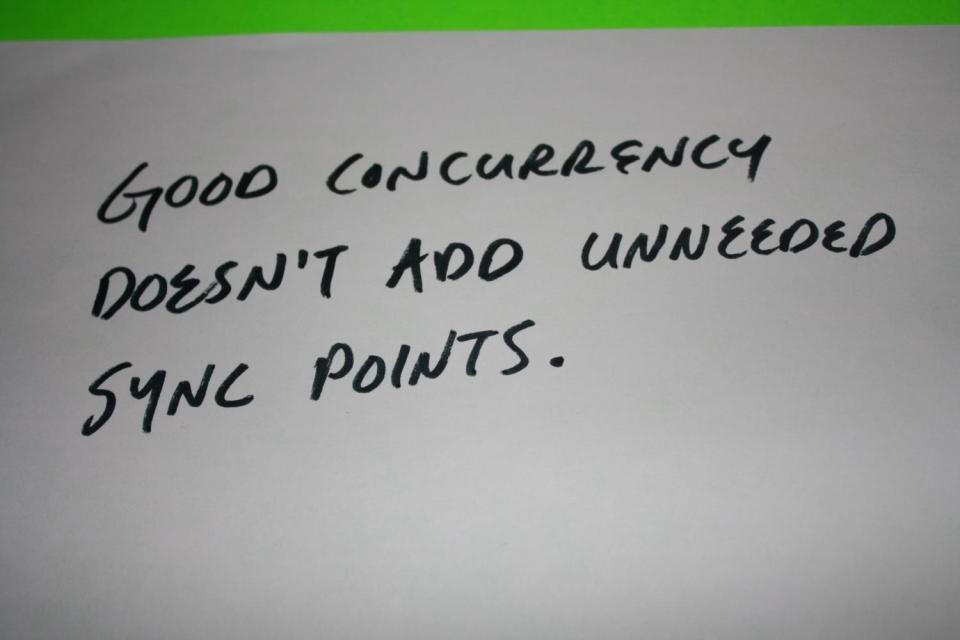 GOOD CONCURRENCY
DOESN'T ADD UNNEEDED
SYNC POINTS.